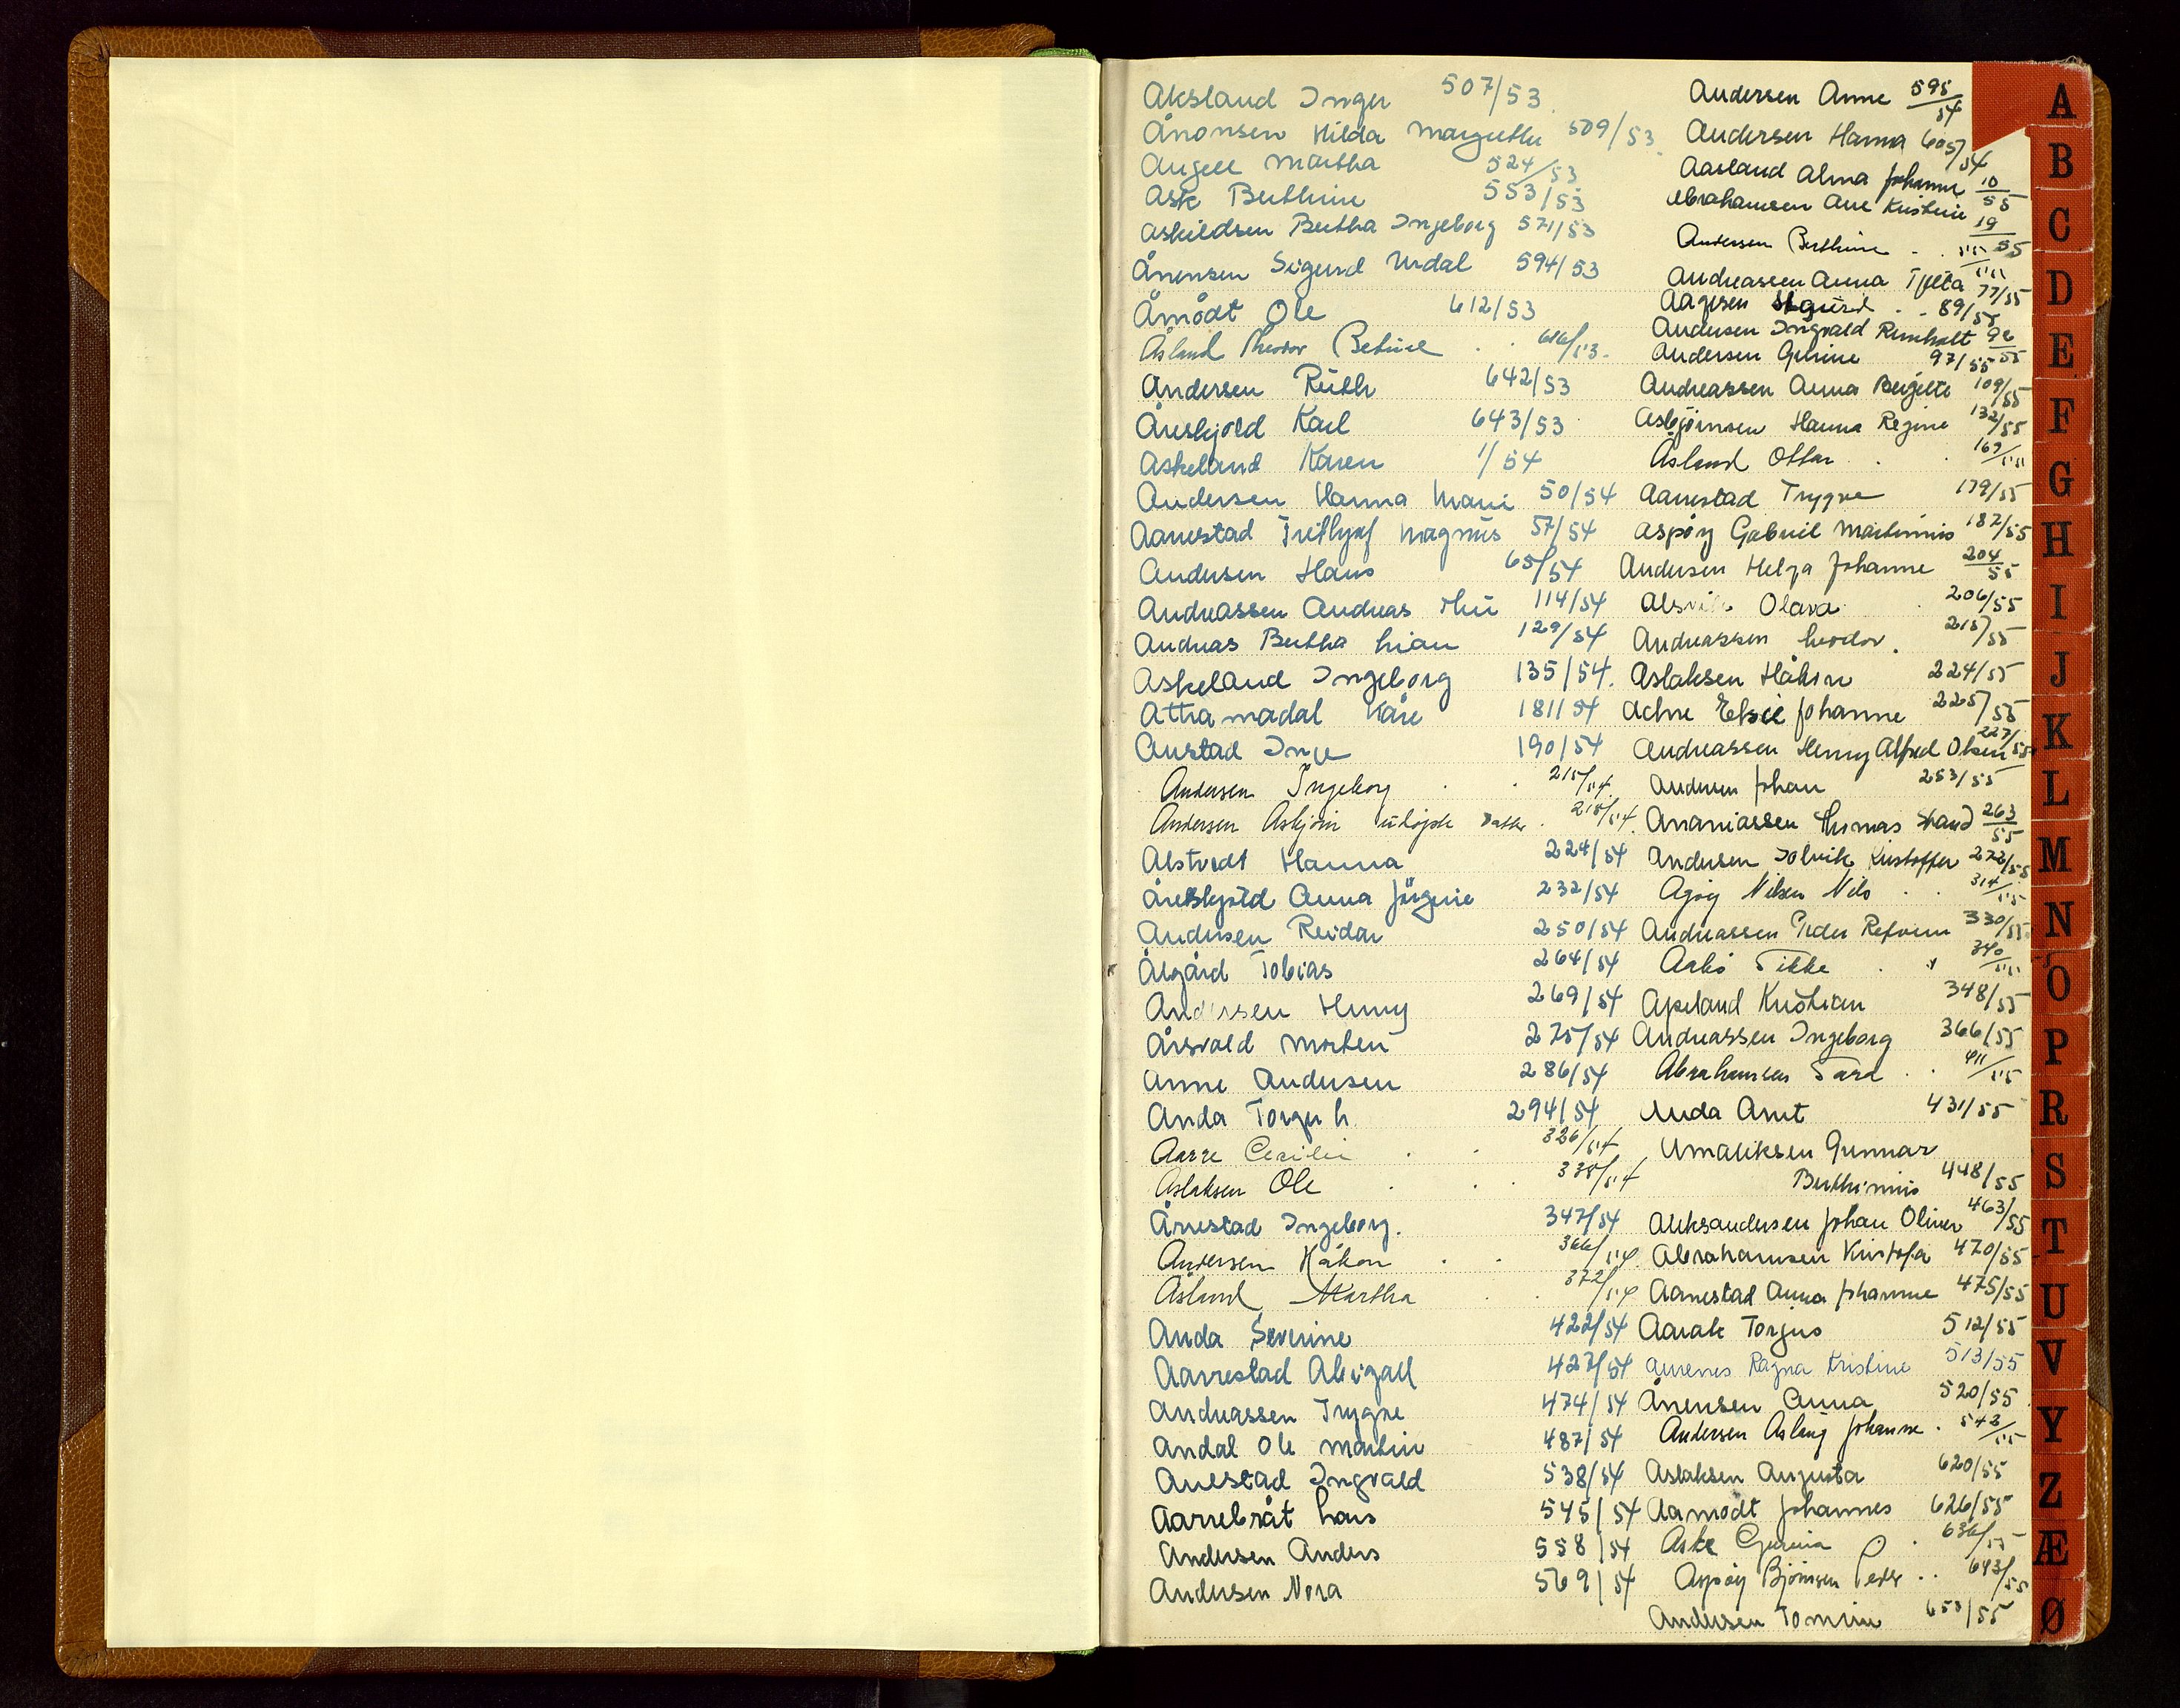 Aksland Inger 507/53
Ånonsen Hilda Margrethe 509/53
Angell Martha 524/53
Ask Berthine 553/53
Askildsen Bertha Ingeborg 571/53
Ånensen Sigurd Urdal 594/53
Åmodt Ole 612/53
Åsland Theodor Betuel 616/53
Andersen Ruth 642/53
Åreskjold Karl 643/53
Askeland Karen 1/54
Andersen Hanna Marie 50/54
Aarrestad Frithjof Magnus 57/54
Andersen Hans 65/54
Andreassen Andreas 114/54
Andreas Bertha 129/54
Askeland Ingeborg 135/54
Attramadal Kåre 181/54
Austad Inge 190/54
Andersen Ingeborg 215/54
Andersen Asbjørn udøpt datter 218/54
Alstvedt Hanna 224/54
Åreskjold Anna Jørgine 232/54
Andersen Reidar 250/54
Ålgård Tobias 264/54
Andersen Henny 269/54
Årsvold Morten 275/54
Anne Andersen 286/54
Anda Torger 294/54
Aarre Cecilie 326/54
Aslaksen Ole 338/54
Årrestad Ingeborg 347/54
Andersen Håkon 366/54
Åsland Martha 372/54
Anda Severine 422/54
Aarrestad Abigael 427/54
Andreassen Trygve 474/54
Andal Ole Martin 487/54
Auestad Ingvald 538/54
Aarrebråt Lars 545/54
Andersen Anders 558/54
Andersen Nora 569/54
Andersen Anne 595/54
Andersen Hanna 605/54
Aasland Alma Johanne 10/55
Abrahamsen Ane Kristine 19/55
Andersen Berthine 55/55
Andreassen Anna Tjelta 77/55
Aagesen Sigurd 89/55
Andersen Ingvald Reinholt 92/55
Andersen Gurine 97/55
Andreassen Anna Bergitte 109/55
Asbjørnsen Hanna Regine 132/55
Åsland Ottar 169/55
Aarrestad Trygve 179/55
Aspøy Gabriel Martinius 187/55
Andersen Helga Johanne 204/55
Alsvik Olava 206/55
Andreassen Theodor 215/55
Aslaksen Håkon 224/55
Achre Elsie Johanne 225/55
Andreassen Henny Alfred Olsen 227/55
Andersen Johan 253/55
Ananiassen Thomas Strand 263/55
Andersen Solvik Kristoffer 272/55
Agøy Nilsen Nils 314/55
Andreassen Peder Refvem 330/55
Askø Tikke 340/55
Apeland Kristian 348/55
Andreassen Ingeborg 366/55
Abrahamsen Sara 411/55
Anda Arnt 431/55
Amaliksen Gunnar
Berthinius 448/55
Aleksandersen Johan Oliver 463/55
Abrahamsen Kristofa 470/55
Aarrestad Anna Johanne 475/55
Aarak Torjus 512/55
Aurenes Ragna Kristine 513/55
Ånensen Anna 520/55
Andersen Aslaug Johanne 542/55
Aslaksen Augusta 620/55
Aamodt Johannes 626/55
Aske Gurina 636/55
Aspøy Bjørnsen Peder 643/55
Andersen Tomine 653/55
A
B
C
D
E
F
G
H
I
J
K
L
M
N
O
P
R
S
T
U
V
Y
Z
Æ
Ø